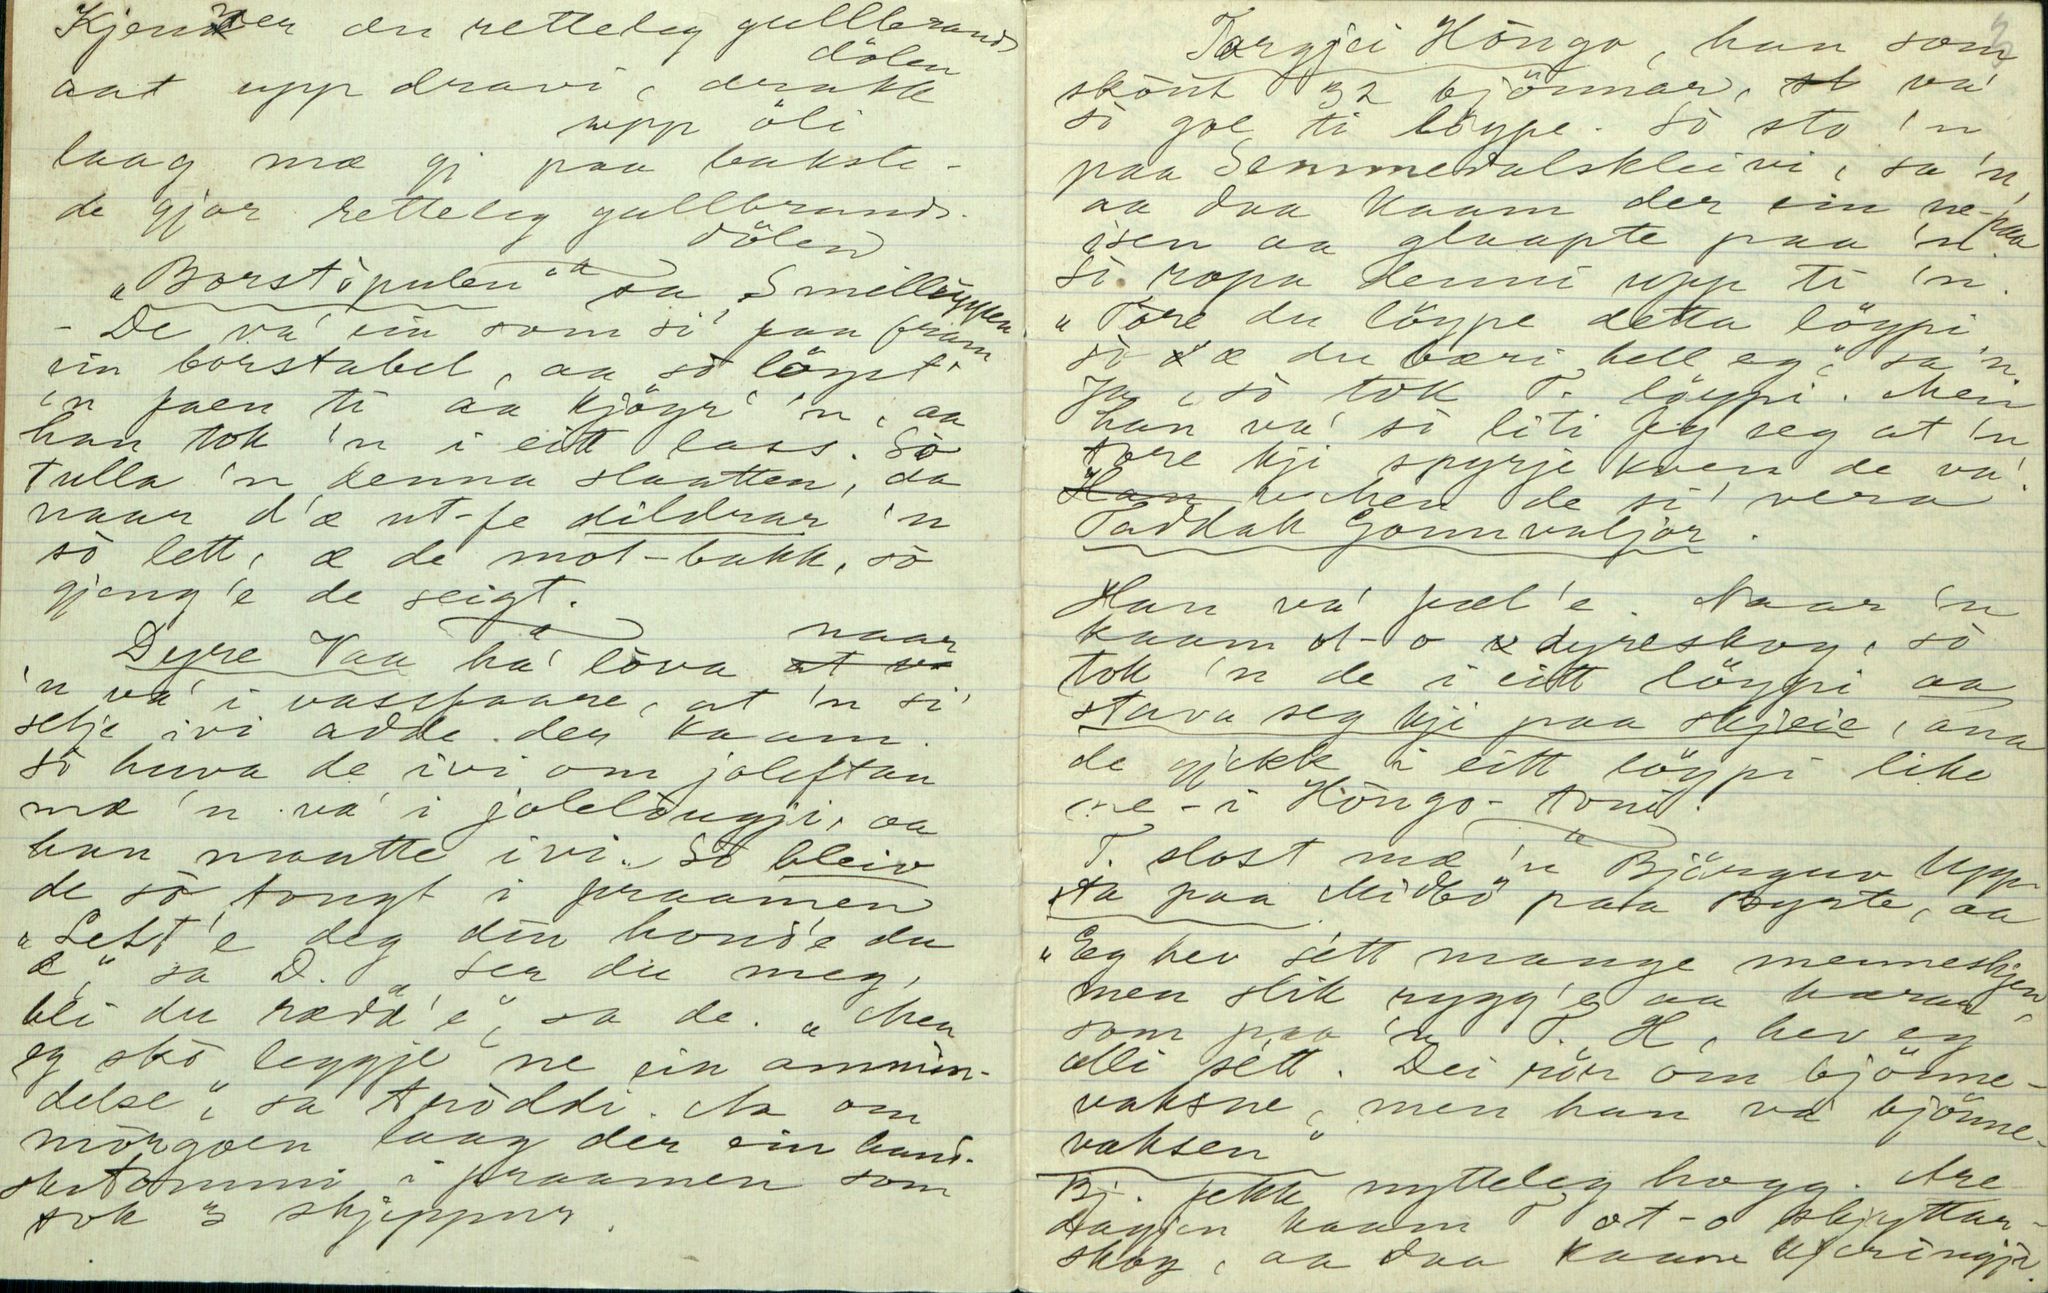 Kjenner du retteleg gullbrands
dölen
aat upp dravi, drakk
upp öli
laag mæ gj paa bakste-
de gjor rettelig gullbrands-
dölen
"Borstöpulen" sa Smillöypen
- De va' ein som si' paa fram
ein borstabel, aa sò löyst'
'n faen ti aa kjöyr' 'n, aa
han tok 'n i eitt lass. Sò
tulla 'n denna slaatten, da
naar d'æ ut-fe dildrar 'n
sò lett, æ de mot-bakk, sò
gjeng'e de seigt.
Dyre Vaa ha' lòva naar
'n va' i vassfaare, at 'n si'
setje ivi adde der kaam.
Sò huva de ivi om joleftan
mæ 'n va' i jolelaugji, aa
han maatte ivi. Sò bleiv
de sò tongt i praamen
"Lett'e deg din hond'e du
æ" sa D. "Ser du meg,
bli du rædd'e", sa de. "Men
eg skò leggje ne ein ammin-
delse", sa tròddi. Aa om
mòrgoen laag der ein hand-
skutommi i praamen som
tok 3 skjeppur.
3
Targjei Höngo, han som
skout 32 björnar, va'
sò go ti löype. Sò sto 'n
paa Semmedalskleivi, sa 'n,
aa daa kaam der ein ne-paa
isen aa glaapte paa 'n.
Sò ropa denni upp ti 'n.
"Tore du löype detta löypi
sò æ du bæri hell eg," sa 'n.
Ja, sò tok T. löypi. Men
han va' sò liti fy seg at 'n
tore kji spyrje kven de va'.
Men de si' vera
Taddak Gonnvaljor.
Han va' fæl'e. Naar 'n
kaam ot-o dyreskog, sò
tok 'n de i eitt löypi aa
stava seg kji paa skjeie, ana
de gjekk i eitt löypi like
ne-i Höngo-toni.
T. slost mæ 'n Björguv Upp-
sta paa Midbö paa Rysste, aa
"Eg hev sétt mange menneskjer,
men slik rygg'e aa hærar,
som paa 'n T. H, hev eg
alli sétt. Dei rör om björne-
vaksne, men han va björne-
vaksen"
Bj. fekk nytteleg hogg. Are
dagjen kaam T ot-o skyttar-
skog, aa daa kaam kjeringji.